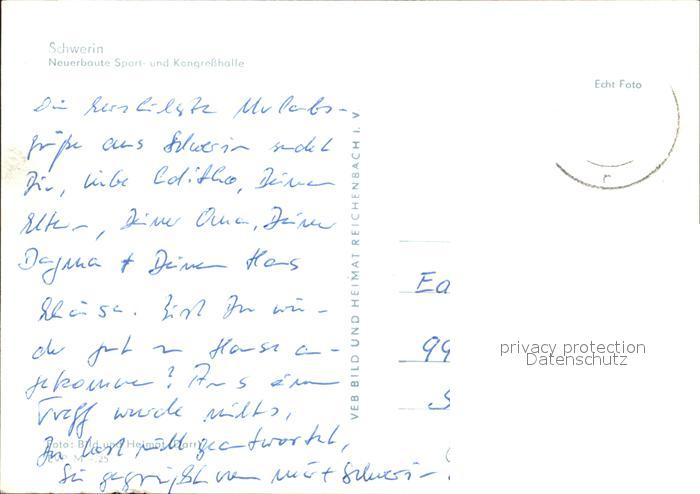 Schwerin
Neuerbaute Sport- und Kongreßhalle
Echt Foto
Die herzlichste Urlaubs-
grüße aus Schwerin sendet
Dir, liebe Editha, Deinen
Eltern, Deiner Oma, Deiner
Dagma + Deinem Hans
Bist Du wie-
der gut zu Hause an-
gekommen? Aus einem
Treff wurde nichts,
Du hast nicht geantwortet,
Sei gegrüßt von
Schwerin.
VEB BILD UND HEIMAT REICHENBACH I. V
Foto: Bild und Heimat
Ea
99
S
privacy protection
Datenschutz